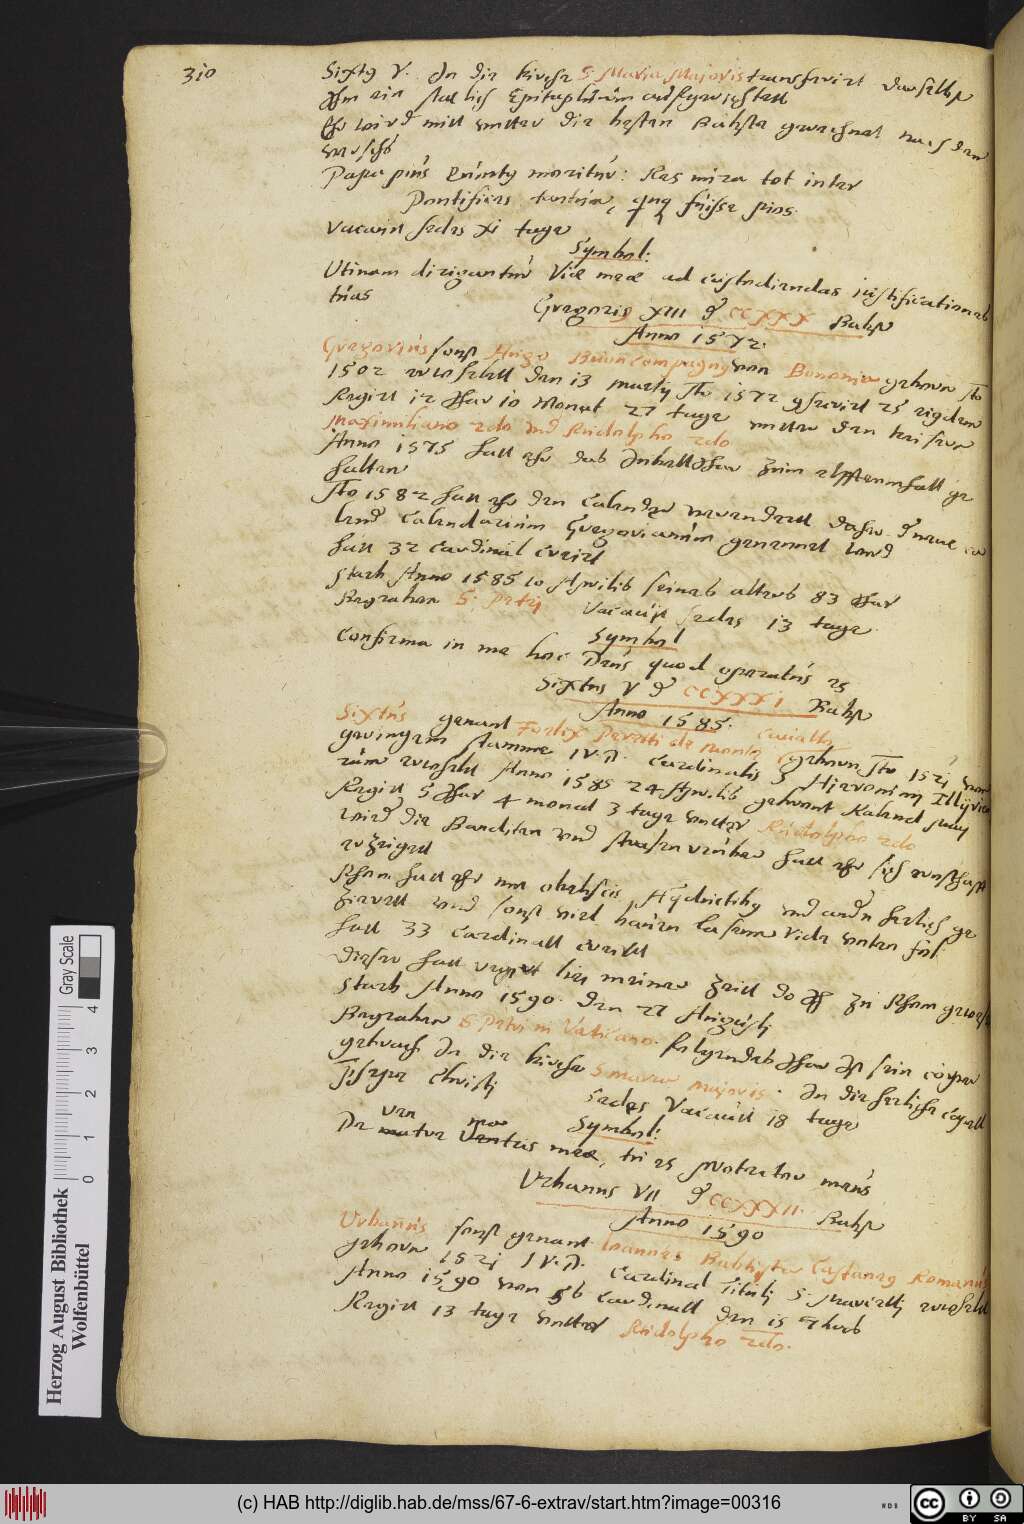 310
Sixtg V. In die kirche S. Maria Majoris transferirt daselbst
Ihm ein statlich Epitaphium auffgerichtett
Ehr wird mitt unter die besten Bäbste gerechnet nach dem
versch
Papa pius Quintg moritur: Res mira tot inter
Pontifices tantum, qng fuisse pios.
Vacavit sedes xi tage
Symbol:
Utinam dirigantur Viæ meæ ad custodiendas justificationes
tuas
Gregorig XIII d CCXXX Babst
Anno 1572.
Gregorius sonst Hugo Buoncompagng von Bononia geborn Ao
1502 erwehlett den 13 martij Ao 1572 gfreiert 25 eigdem
Regirt 12 Jhar 10 Monat 27 tage unter den keisern
Maximiliano 2do und Rudolpho 2do
Anno 1575 hatt ehr das Jubell Jhar zum elfftenmhall ge
halten
Ao 1582 hatt ehr den Calender verendertt daher d neue ca
lend Calendarium Gregorianum genennet wird
hatt 32 cardinal creirt
Starb Anno 1585 10 Aprilis seines alters 83 Jhar
Begraben S. Petrj Vacavit sedes 13 tage
Symbol
Confirma in me hoc Deus quod operatus es
Sixtus V d CCXXXI Babst
Anno 1585.
Sixtus genant Foelix Peretti de monte
geringem stamme IV.D. Cardinalis S Hieronimj Illyrico
rum erwehlt Anno 1585 24 Aprilis gekront kalend maij
Regirt 5 Jhar 4 monat 3 tage unter Rudolpho 2do
wird die Banditen und strassen reuber hatt ehr sich ernsthafft
erzeigett
Rhom hatt ehr mit obeliscis, Aquaeductibg und andern herlich ge
zierett und sonst viel bauen lassen vide unten fol.
hatt 33 Cardinall creirt
Dieser hatt regirt bei meiner zeitt do Ich zu Rhom gewesen
Starb Anno 1590. den 27 Augustj
Begraben S Petri in Vaticano. folgendes Jhar Ist sein cörper
gebrach In die kirche S maria majoris. In die herliche capell
Praesepe Christj
Sedes Vacavit 18 tage
Symbol:
ven meo
De matre Ventris meæ, tu es protector meus
Urbanus VII d CCXXXII. Babst
Anno 1590
Urbanus sonst genant Ioannes Babtista Castaneg Romanus
geborn 1521 IV.D. Cardinal Titulj S. Marcellj erwehlt
Anno 1590 von 56 Cardinall den 15 7tbris
Regirt 13 tage unter Rudolpho 2do.
Herzog August Bibliothek
Wolfenbüttel
Gray Scale
0 1 2 3 4
(c) HAB http://diglib.hab.de/mss/67-6-extrav/start.htm?image=00316
WDB
cc BY SA